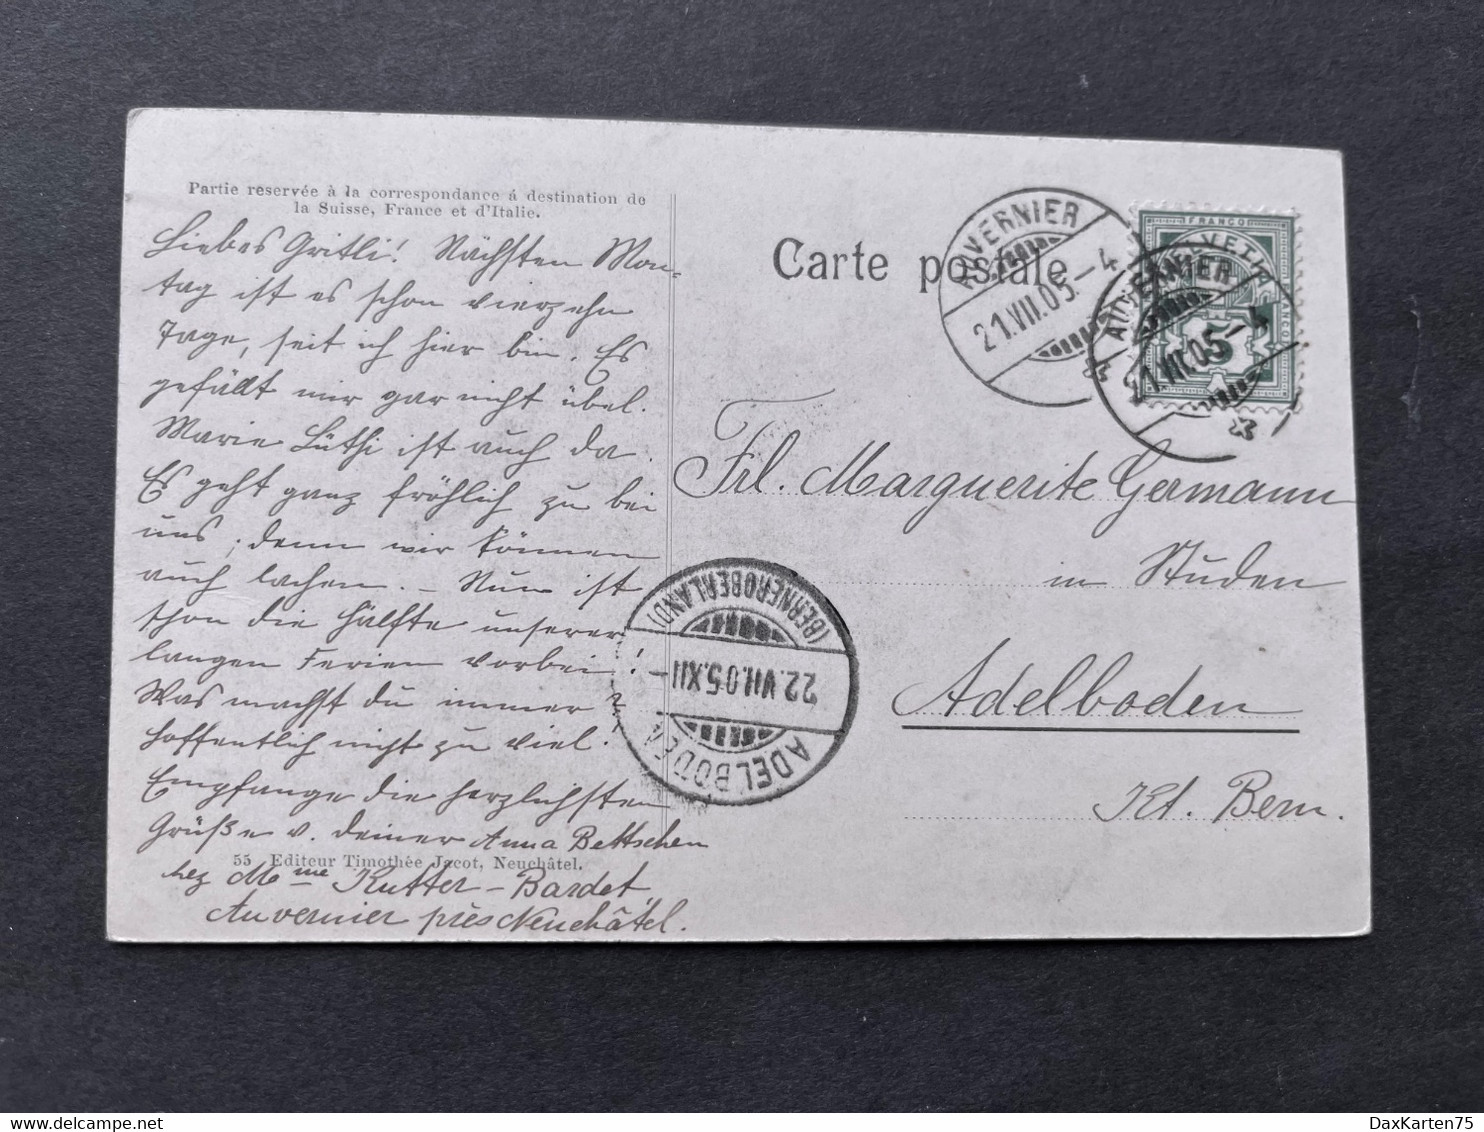 Partie reservée à la correspondance á destination de
la Suisse, France et d'Italie.
Liebes Gritli! Nächsten Mon-
tag ist es schon vierzehn
Tage, seit ich hier bin. Es
gefällt mir gar nicht übel.
Marie Lüthi ist auch da.
Es geht ganz fröhlich zu bei
uns, denn wir können
auch lachen. – Nun ist
schon die Hälfte unserer
langen Ferien vorbei!
Was machst du immer?
Hoffentlich nicht zu viel!
Empfange die herzlichsten
Grüße v. deiner Anna Bettschen
55 Editeur Timothée Jacot, Neuchâtel.
chez Mme Kutter-Bardet,
Auvernier près Neuchâtel.
Carte postale
AUVERNIER
21.VII.05.-4
FRANCO
HELVETIA
FRANCO
5
AUVERNIER
21.VII.05-4
Frl. Marguerite Germann
in Studen
Adelboden
Kt. Bern.
ADELBODEN
22.VII.05.XII-
(BERNEROBERLAND)
DaxKarten75